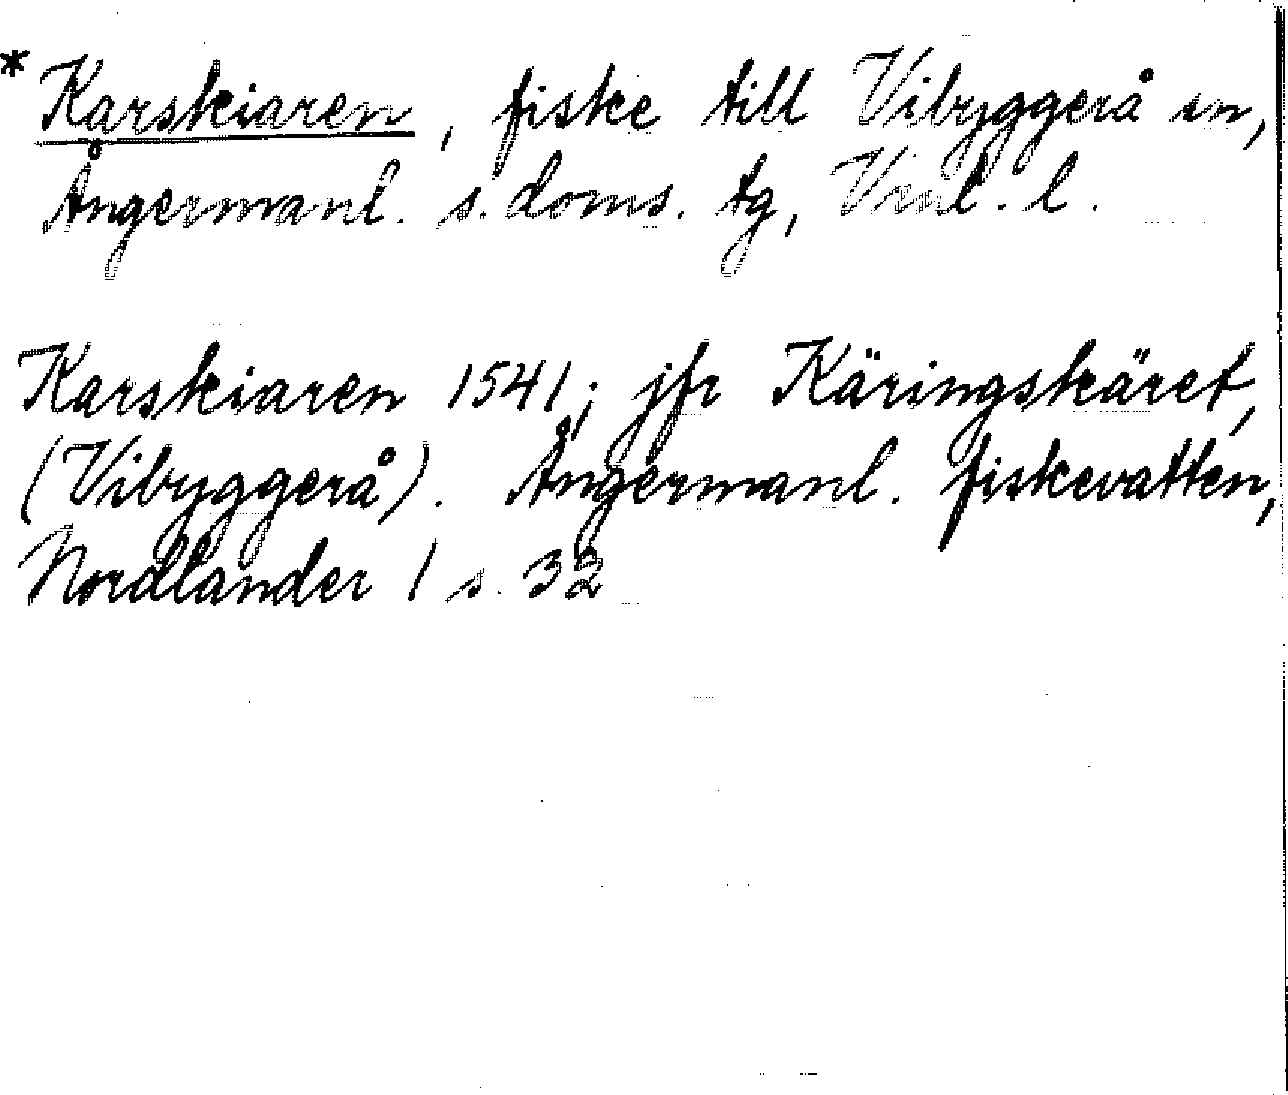 * Karskiaren, fiske till Vibyggerå sn,
Ångermanl. s. doms. tg, Vnl. l.
Karskiaren 1541; jfr Käringskäret,
(Vibyggerå). Ångermanl. fiskevatten,
Nordlander 1 s. 32